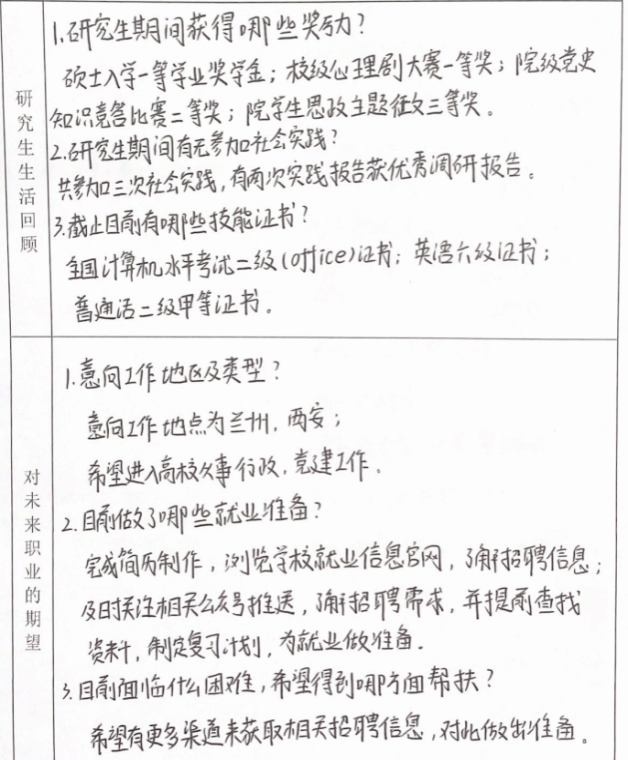 研究生生活回顾
1.研究生期间获得哪些奖励?
硕士入学一等学业奖学金;校级心理剧大赛一等奖;院级党史
知识竞答比赛二等奖;院学生思政主题征文三等奖。
2.研究生期间有无参加社会实践?
共参加三次社会实践,有两次实践报告获优秀调研报告。
3.截止目前有哪些技能证书?
全国计算机水平考试二级(office)证书;英语六级证书;
普通话二级甲等证书。
对未来职业的期望
1.意向工作地区及类型?
意向工作地点为兰州,西安;
希望进入高校从事行政,党建工作。
2.目前做了哪些就业准备?
完成简历制作,浏览学校就业信息官网,了解招聘信息;
及时关注相关公众号推送,了解招聘需求,并提前查找
资料,制定复习计划,为就业做准备。
3.目前面临什么困难,希望得到哪方面帮扶?
希望有更多渠道来获取相关招聘信息,对此做出准备。